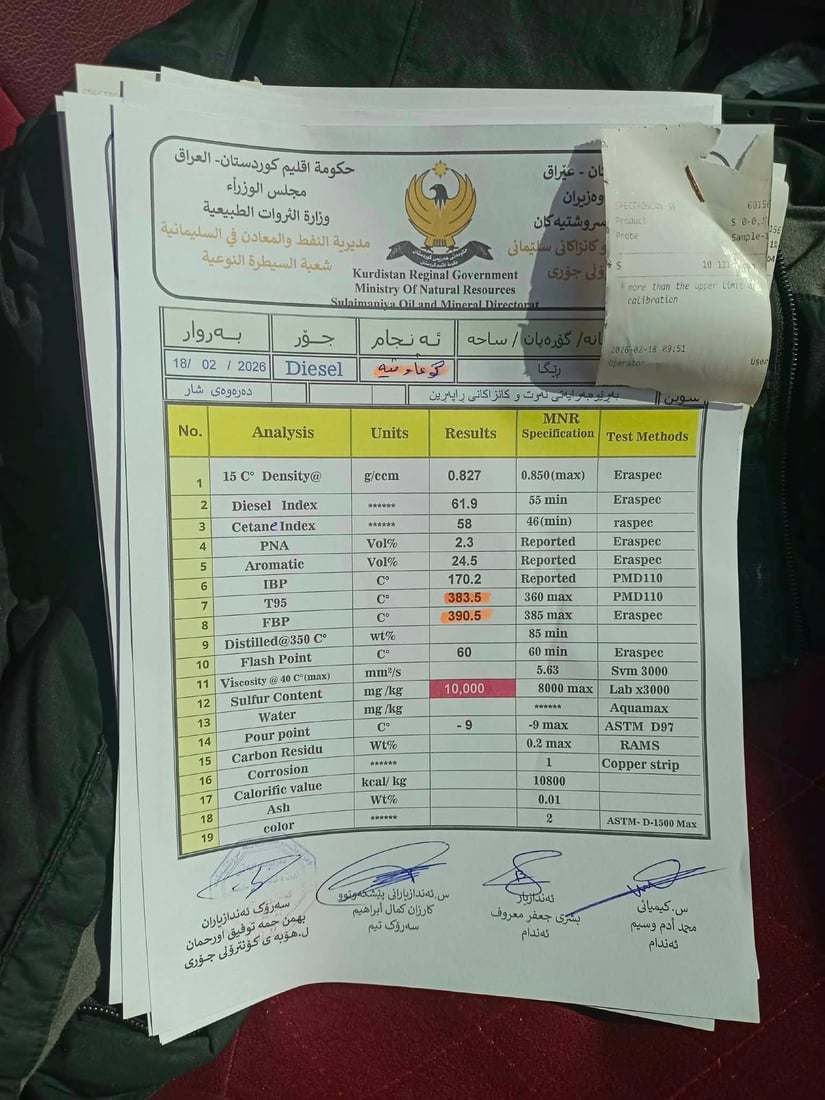 حكومة اقليم كوردستان- العراق
مجلس الوزراء
وزارة الثروات الطبيعية
مديرية النفط والمعادن في السليمانية
شعبة السيطرة النوعية
ان - عێراق
وەزیران
سروشتیەکان
و کانزاکانی سلێمانی
ۆلی جۆری
Kurdistan Reginal Government
Ministry Of Natural Resources
Sulaimaniya Oil and Mineral Directorat
SPECTROSCAN SE
Product S 0-0,
Probe Sample-
S 10 111
more than the upper limit
calibration
2026-02-18 09:51
Operator User
بەروار جۆر ئەنجام انە/ گۆڕەپان / ساحە
18/ 02 / 2026 Diesel ڕێگا
دەرەوەی شار بەڕێوبەرایەتی نەوت و کانزاکانی ڕاپەڕین سوین
No. Analysis Units Results MNR Specification Test Methods
1 15 C° Density@ g/ccm 0.827 0.850(max) Eraspec
2 Diesel Index ****** 61.9 55 min Eraspec
3 Cetane Index ****** 58 46(min) raspec
4 PNA Vol% 2.3 Reported Eraspec
5 Aromatic Vol% 24.5 Reported Eraspec
6 IBP C° 170.2 Reported PMD110
7 T95 C° 383.5 360 max PMD110
8 FBP C° 390.5 385 max Eraspec
9 Distilled@350 C° wt% 85 min
10 Flash Point C° 60 60 min Eraspec
11 Viscosity @ 40 C°(max) mm²/s 5.63 Svm 3000
12 Sulfur Content mg /kg 10,000 8000 max Lab x3000
13 Water mg /kg ****** Aquamax
14 Pour point C° - 9 -9 max ASTM D97
15 Carbon Residu Wt% 0.2 max RAMS
16 Corrosion ****** 1 Copper strip
17 Calorific value kcal/ kg 10800
18 Ash Wt% 0.01
19 color ****** 2 ASTM- D-1500 Max
سەرۆک ئەندازیاران
بهمن حمه توفیق اورحمان
ل.هۆبە ی کۆنترۆلی جۆری
س.ئەندازیارانی پێشکەوتوو
کارزان کمال ابراهیم
سەرۆک تیم
ئەندازیار
بشری جعفر معروف
ئەندام
س.کیمیائی
محمد أدم وسیم
ئەندام